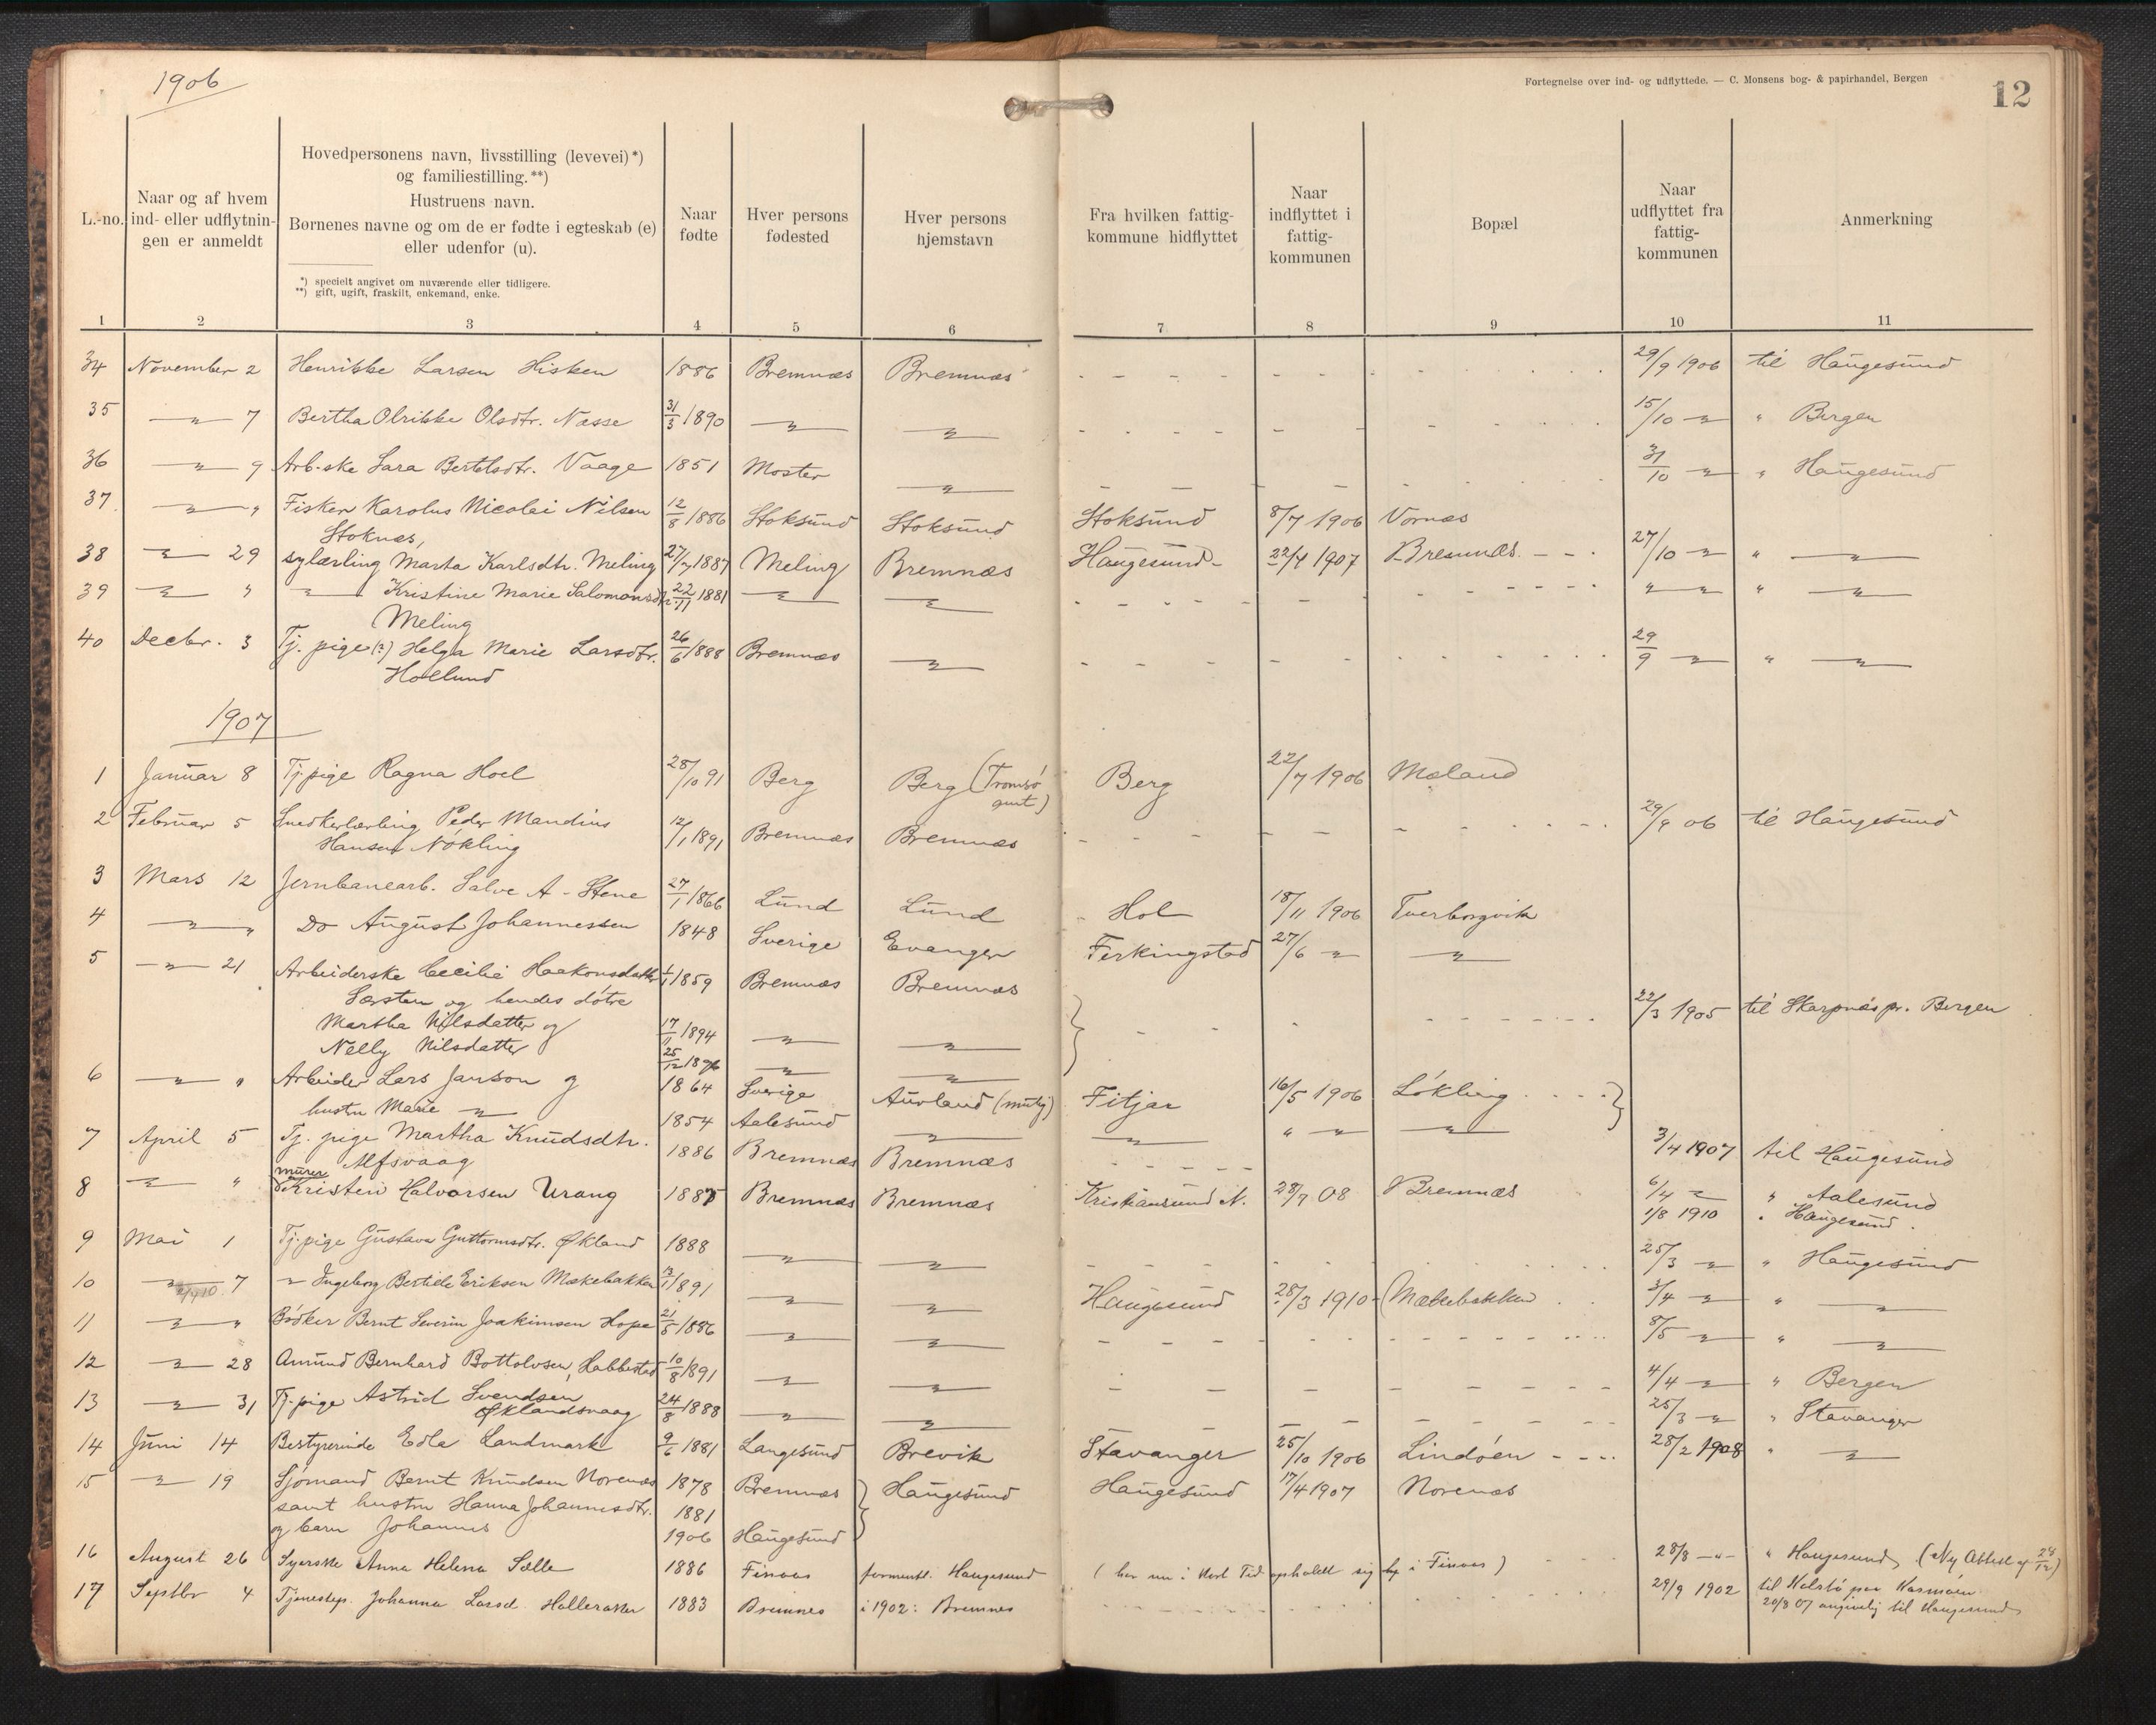 1906
Fortegnelse over ind- og udflyttede. — C. Monsens bog- & papirhandel, Bergen
12
L.-no.
Naar og af hvem ind- eller udflytningen er anmeldt
Hovedpersonens navn, livsstilling (levevei)*)
og familiestilling.**)
Hustruens navn.
Børnenes navne og om de er fødte i egteskab (e)
eller udenfor (u).
*) specielt angivet om nuværende eller tidligere.
**) gift, ugift, fraskilt, enkemand, enke.
Naar fødte
Hver persons fødested
Hver persons hjemstavn
Fra hvilken fattigkommune hidflyttet
Naar indflyttet i fattigkommunen
Bopæl
Naar udflyttet fra fattigkommunen
Anmerkning
1 2 3 4 5 6 7 8 9 10 11
34 November 2 Henrikke Larsen Hisken 1886 Bremnæs Bremnæs - - - - 29/9 1906 til Haugesund
35 —"— 7 Bertha Olrikke Olsdtr. Næsse 31/3 1890 —"— —"— - - - - 15/10 —"— " Bergen
36 —"— 9 Arb.ske Sara Bertelsdtr. Vaage 1851 Moster —"— - - - - 31/10 —"— " Haugesund
37. —"— " Fisker Karolus Nicolai Nilsen 12/8 1886 Stoksund Stoksund Stoksund 8/7 1906 Vornæs
Stoknæs,
38 —"— 29 sylærling Marta Karlsdtr. Meling 27/7 1887 Meling Bremnæs Haugesund - 22/4 1907 Bremnæs - - - 27/10 —"— " —"—
39 —"— " —"— Kristine Marie Salomonsdtr. 22/11 1881 —"— —"— - - - - "—"— " —"—
Meling
40 Decbr. 3 Tj. pige (?) Helga Marie Larsdtr. 26/6 1888 Bremnæs —"— - - - - 29/9 —"— " —"—
Hollund
1907
1 Januar 8 Tj. pige Ragna Hoel 28/10 91 Berg Berg (Tromsø Berg 22/7 1906 Mæland
amt)
2 Februar 5 Snedkerlærling Peder Mandius 12/1 1891 Bremnæs Bremnæs - - - - 29/9 06 til Haugesund
Hansen Nökling
3 Mars 12 Jernbanearb. Salve A - Stene 27/1 1866 Lund Lund Hol 18/11 1906 Tverborgvik
4 —"— " Do August Johannessen 1848 Sverige Evanger Ferkingstad 27/6 —"— —"—
5 —"— 21 Arbeiderske Cecilie Haakonsdatter 1/1 1859 Bremnæs Bremnæs
Sørsten og hendes døtre - - - - 22/3 1905 til Skarpnæs pr. Bergen
Martha Nilsdatter og 17/11 1894 —"— —"—
Nelly Nilsdatter 25/12 1896 —"— —"—
6 —"— " Arbeider Lars Janson og 1864 Sverige Aurland (mulig) Fitjar 16/5 1906 Løkling . . . .
hustru Marie —"— 1854 Aalesund —"— —"— " —"— —"—
7 April 5 Tj. pige Martha Knudsdtr. 1886 Bremnæs Bremnæs - - - - 3/4 1907 til Haugesund
Alfsvaag
8 —"— " murer Kristen Halvorsen Urang 1885 Bremnæs Bremnæs Kristiansund N. 28/7 08 Bremnæs 6/4 —"— " Aalesund
1/8 1910 " Haugesund.
9 Mai 1 Tj. pige Gustava Guttormsdtr. Økland 1888 —"— —"— - - - - 25/3 —"— " Haugesund
10 —"— 7 —"— Ingeborg Bertide Eriksen Mækebakken 13/1 1891 —"— —"— Haugesund 28/3 1910 - Mækebakken . . 3/4 —"— " —"—
11 —"— " Bödker Bernt Severin Joakimsen Hope 21/5 1886 —"— —"— - - - - 8/5 —"— " —"—
12 —"— 28 Amund Bernhard Bottolvsen, Habbestad 10/8 1891 —"— —"— - - - - 4/4 —"— " Bergen
13 —"— 31 Tj. pige Astrid Svendsen 24/8 1888 —"— —"— - - - - 25/3 —"— " Stavanger
Øklandsvaag
14 Juni 14 Bestyrerinde Edle Landmark 9/6 1881 Langesund Brevik Stavanger 25/10 1906 Lindöen - - - - 28/2 1908 " —"—
15 —"— 19 Sjømand Bernt Knudsen Norenæs 1878 Bremnæs Haugesund Haugesund 17/4 1907 Norenæs
samt hustru Hanna Johannesdtr. 1881
og barn Johannes 1906 Haugesund
16 August 26 Syerske Anna Helena Sælle 1886 Finaas forment. Haugesund ( har nu i Tid opholdt sig i Finaas ) 28/8 —"— " Haugesund. (Ny Attest 28/12)
17 Septbr 4 Tjenestep. Johanna Larsd. Halleraker 1883 Bremnes i 1902: Bremnes - - - - 29/9 1902 til Kolstø paa Karmøen
20/8 07 angivelig til Haugesund